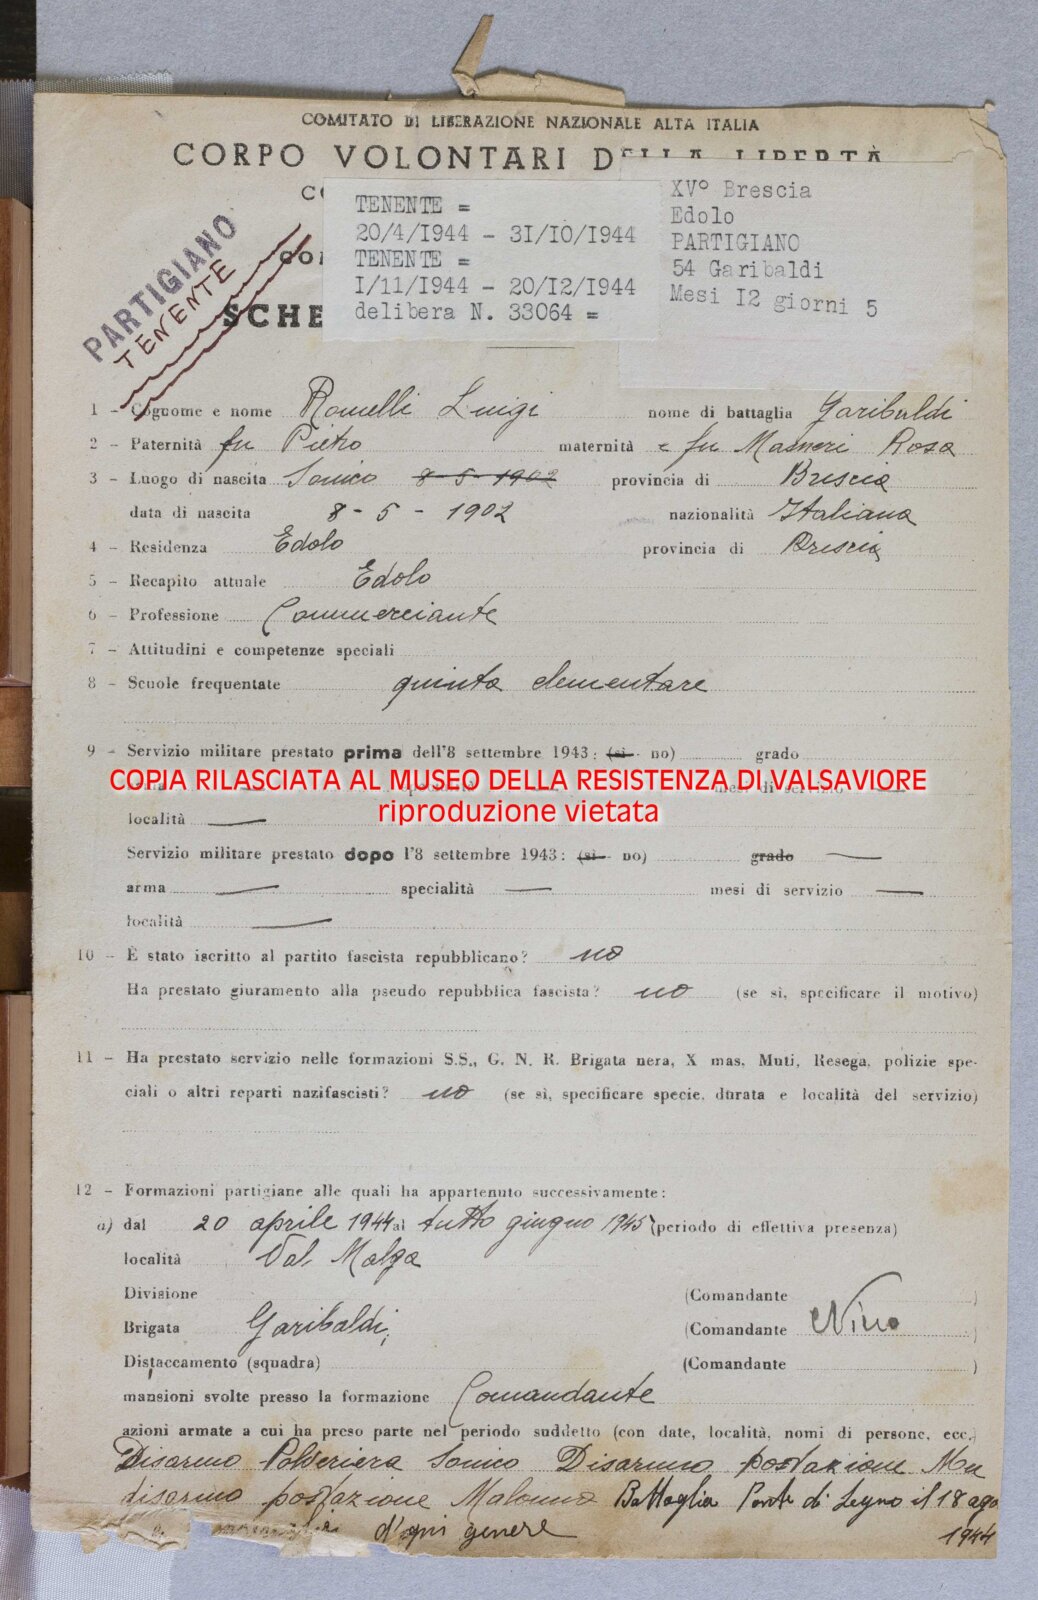 COMITATO DI LIBERAZIONE NAZIONALE ALTA ITALIA
CORPO VOLONTARI DELLA LIBERTÀ
TENENTE =
20/4/I944 - 3I/IO/I944
TENENTE =
I/II/I944 - 20/I2/I944
delibera N. 33064 =
XV° Brescia
Edolo
PARTIGIANO
54 Garibaldi
Mesi I2 giorni 5
PARTIGIANO
TENENTE
SCHE
1 - Cognome e nome Ramelli Luigi nome di battaglia Garibaldi
2 - Paternità fu Pietro maternità e fu Masneri Rosa
3 - Luogo di nascita Sonico 8-5-1902 provincia di Brescia
data di nascita 8-5-1902 nazionalità Italiana
4 - Residenza Edolo provincia di Brescia
5 - Recapito attuale Edolo
6 - Professione Commerciante
7 - Attitudini e competenze speciali
8 - Scuole frequentate quinta elementare
9 - Servizio militare prestato prima dell'8 settembre 1943: (sì - no) grado
COPIA RILASCIATA AL MUSEO DELLA RESISTENZA DI VALSAVIORE
mesi di servizio
riproduzione vietata
località
Servizio militare prestato dopo l'8 settembre 1943: (sì - no) grado
arma specialità mesi di servizio
località
10 - È stato iscritto al partito fascista repubblicano? no
Ha prestato giuramento alla pseudo repubblica fascista? no (se sì, specificare il motivo)
11 - Ha prestato servizio nelle formazioni S.S., G. N. R. Brigata nera, X mas, Muti, Resega, polizie spe-
ciali o altri reparti nazifascisti? no (se sì, specificare specie, durata e località del servizio)
12 - Formazioni partigiane alle quali ha appartenuto successivamente:
a) dal 20 aprile 1944 al tutto giugno 1945 (periodo di effettiva presenza)
località Val Malga
Divisione (Comandante )
Brigata Garibaldi, (Comandante Nino )
Distaccamento (squadra) (Comandante )
mansioni svolte presso la formazione Comandante
azioni armate a cui ha preso parte nel periodo suddetto (con date, località, nomi di persone, ecc.)
Disarmo Polveriera Sonico Disarmo postazione Mu
disarmo postazione Malonno Battaglia Ponte di Legno il 18 ago
d'ogni genere 1944